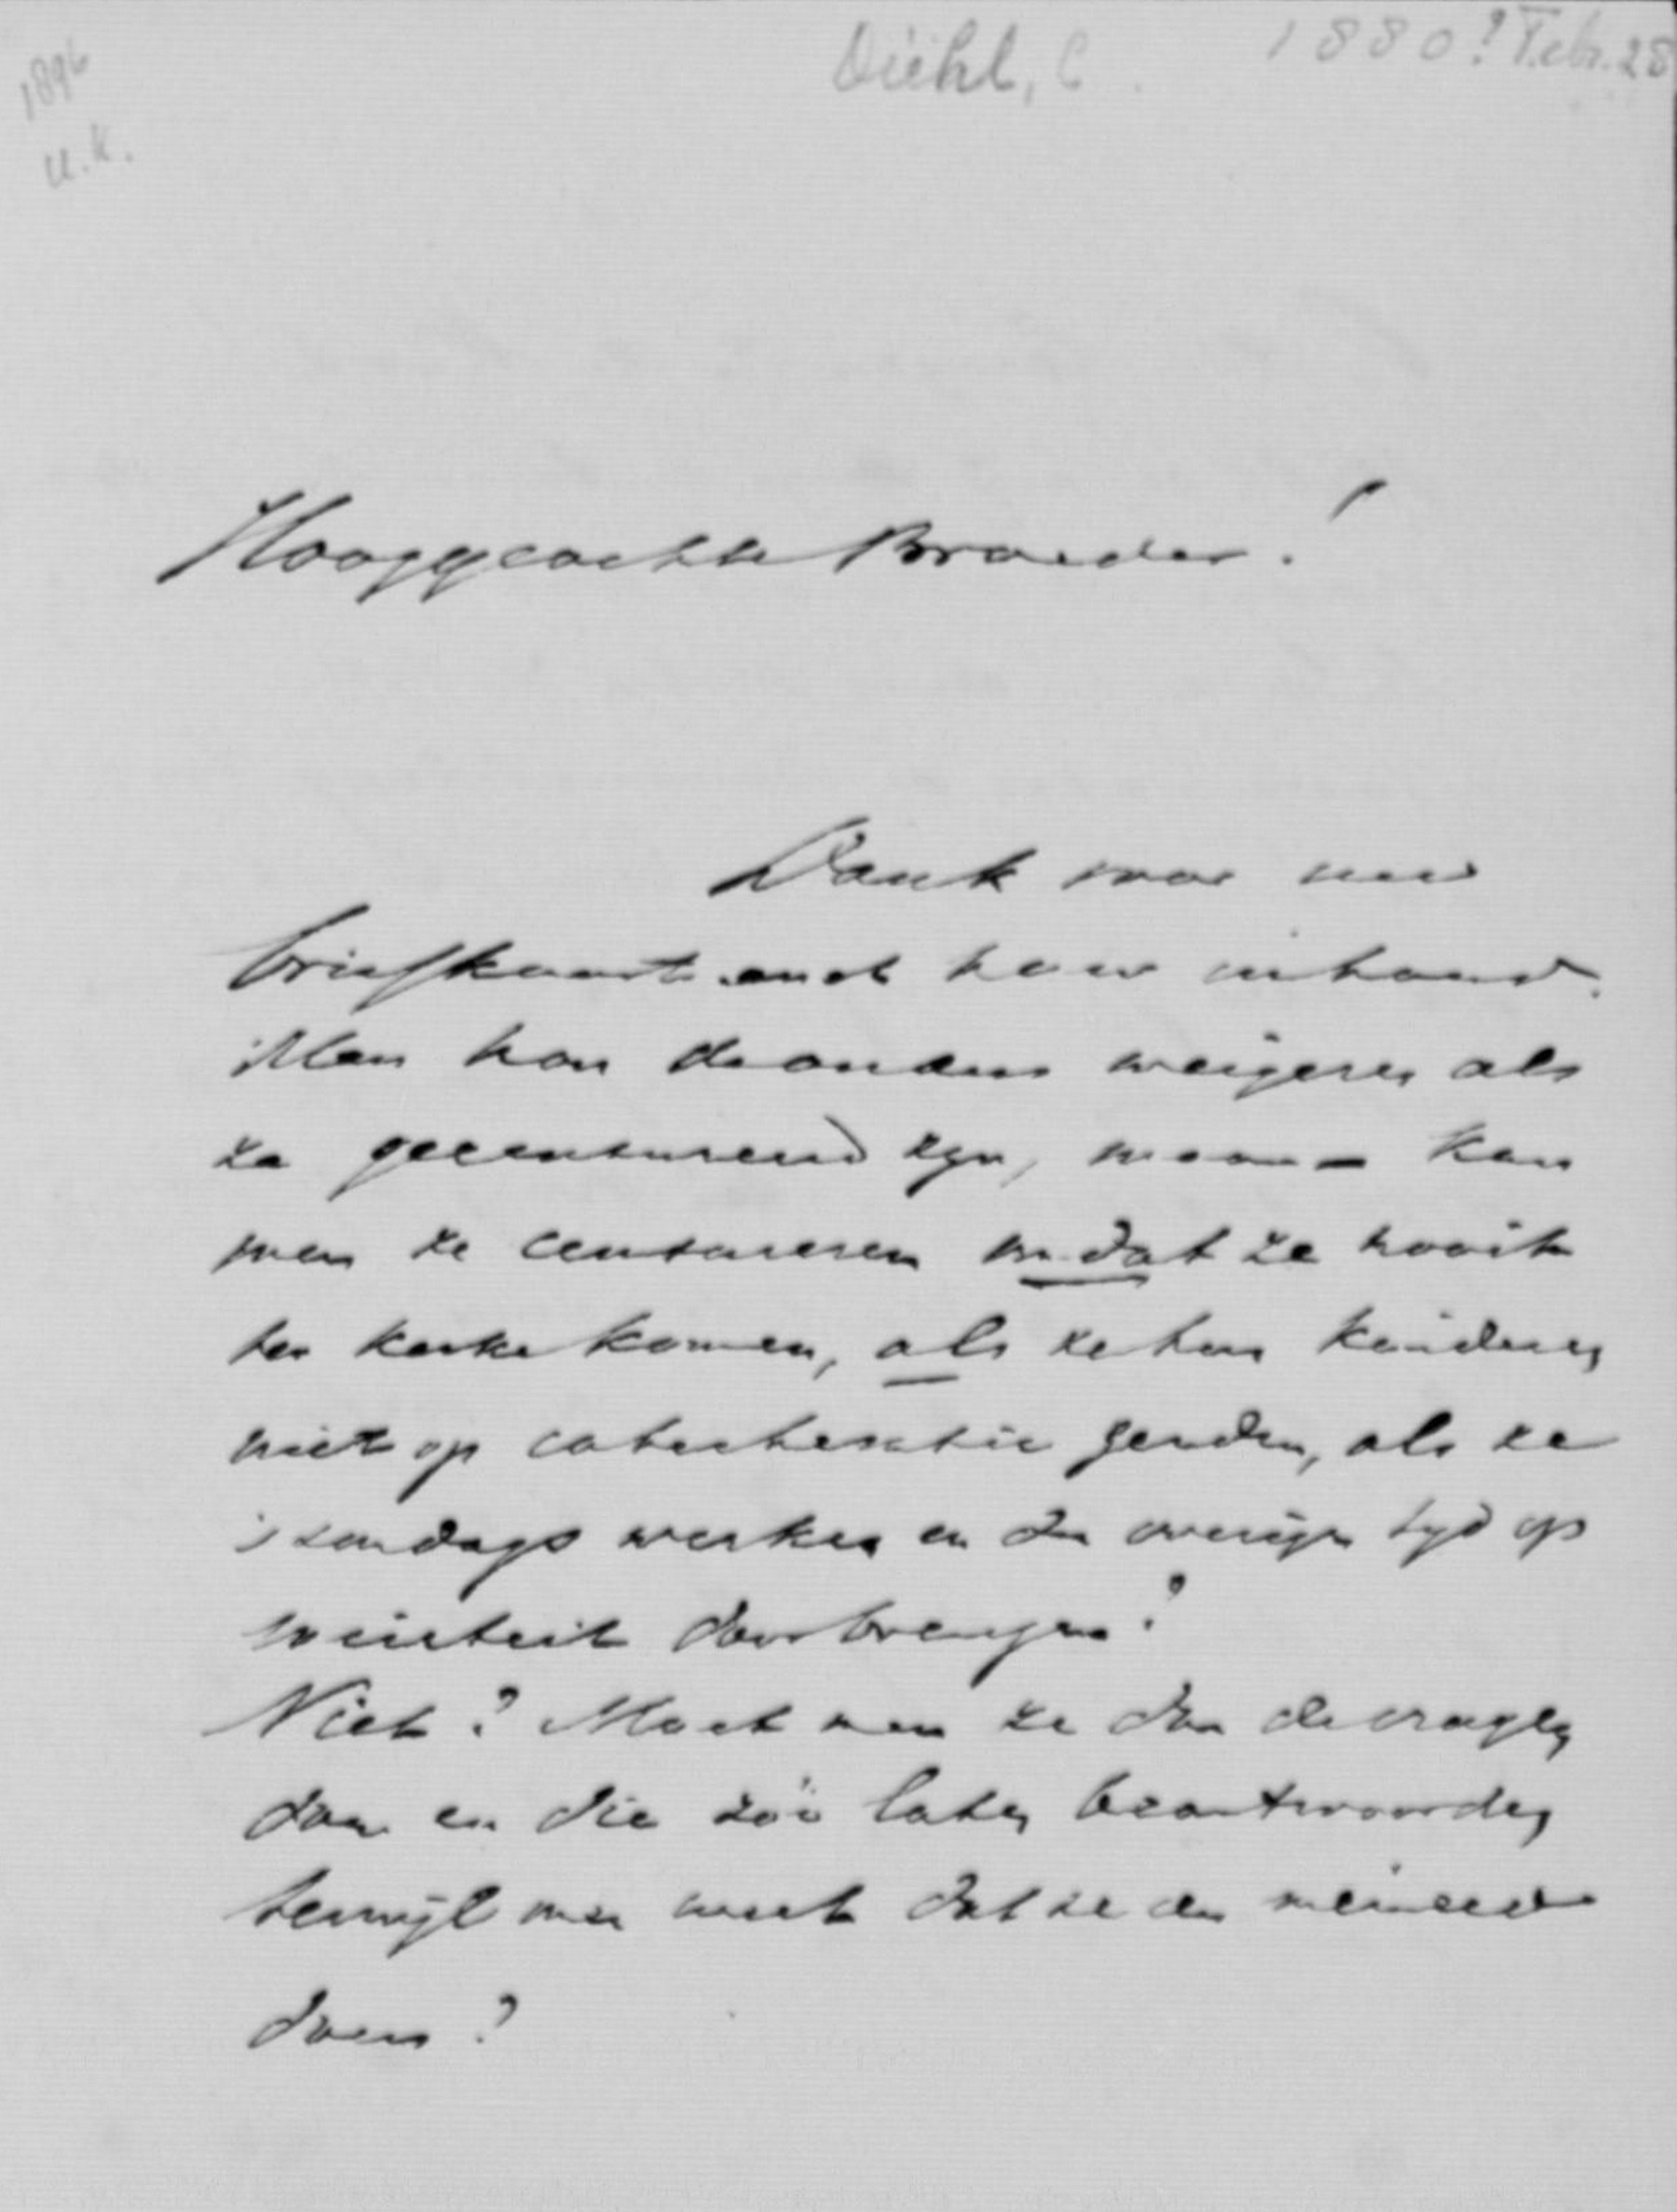 1896
U.K.
Diehl, C.
1880? Febr. 28
Hooggeachte Broeder!
Dank voor uw
briefkaart en haar inhoud.
Men kan de ouders weigeren als
ze gecensureerd zyn, maar – kan
men ze censureren omdat ze nooit
ter kerke komen, als ze hun kinderen
niet op catechesatie zenden, als ze
's zondags werken en den overigen tyd op
doorbrengen?
Niet? Moet men ze dan de vragen
doen en die zóó laten beantwoorden
terwijl men weet dat ze een meineed
doen?